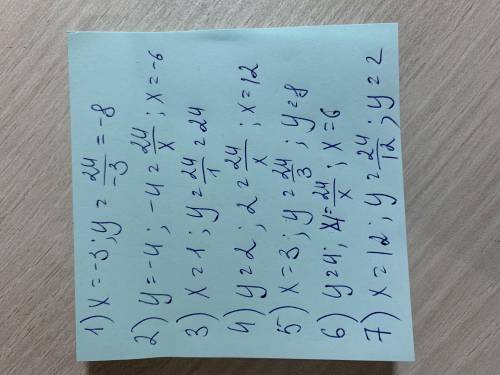 1) x = -3; y = 24/-3 = -8
2) y = -4; -4 = 24/x; x = -6
3) x = 1; y = 24/1 = 24
4) y = 2; 2 = 24/x; x = 12
5) x = 3; y = 24/3; y = 8
6) y = 4; 4 = 24/x; x = 6
7) x = 12; y = 24/12; y = 2